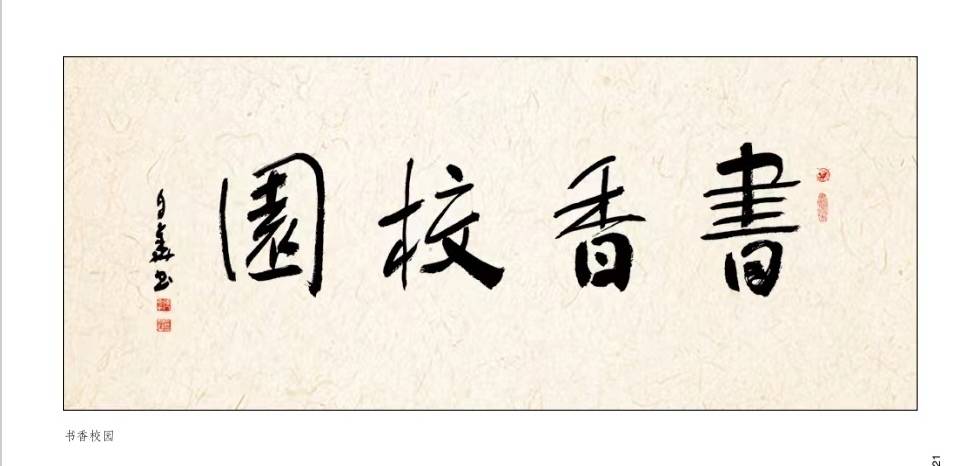 書香校園
书香校园
21